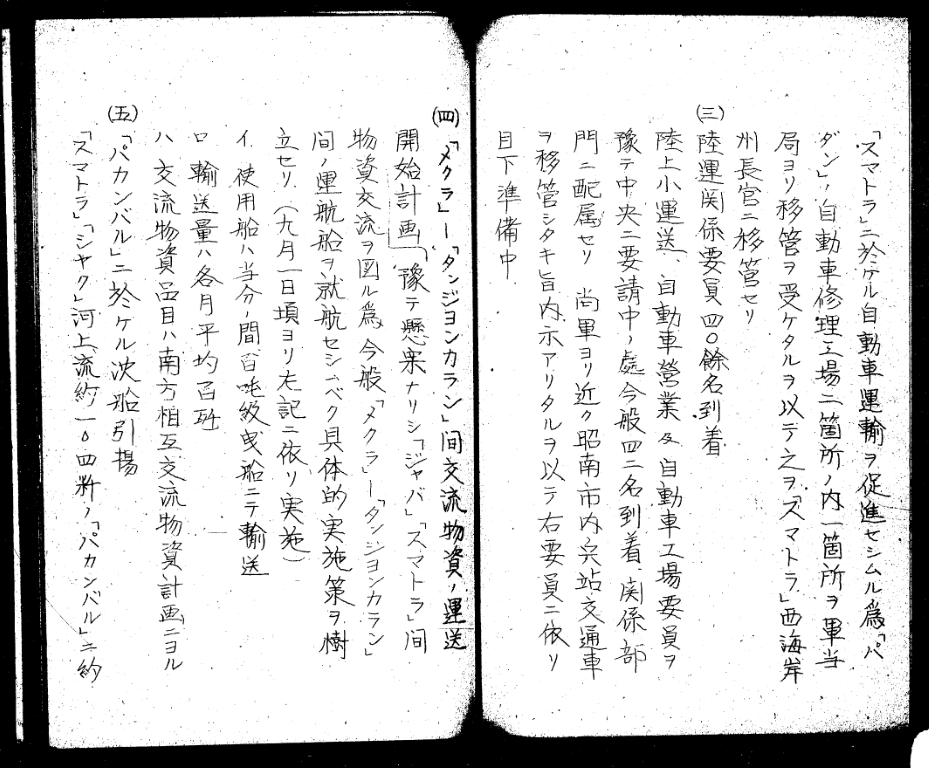 「スマトラ」ニ於ケル自動車運輸ヲ促進セシムル為「パ
ダン」ノ自動車修理工場二箇所ノ内一箇所ヲ軍当
局ヨリ移管ヲ受ケタルヲ以テ之ヲ「スマトラ」西海岸
州長官ニ移管セリ
(三)陸運関係要員四〇餘名到着
陸上小運送、自動車営業及自動車工場要員ヲ
豫テ中央ニ要請中ノ處今般四二名到着、関係部
門ニ配属セリ 尚軍ヨリ近ク昭南市内兵站交通車
ヲ移管シタキ旨内示アリタルヲ以テ右要員ニ依リ
目下準備中
(四)「メクラ」―「タンジヨンカラン」間交流物資ノ運送
開始計画 豫テ懸案ナリシ「ジャバ」「スマトラ」間
物資交流ヲ図ル為今般「メクラ」―「タンジヨンカラン」
間ノ運航船ヲ就航セシムベク具体的実施策ヲ樹
立セリ(九月一日頃ヨリ左記ニ依リ実施)
イ 使用船ハ当分ノ間百噸級曳船ニテ輸送
ロ 輸送量ハ各月平均百瓲
ハ 交流物資品目ハ南方相互交流物資計画ニヨル
(五)「パカンバル」ニ於ケル沈船引揚
「スマトラ」「シヤク」河上流約一〇四粁ノ「パカンバル」ニ約